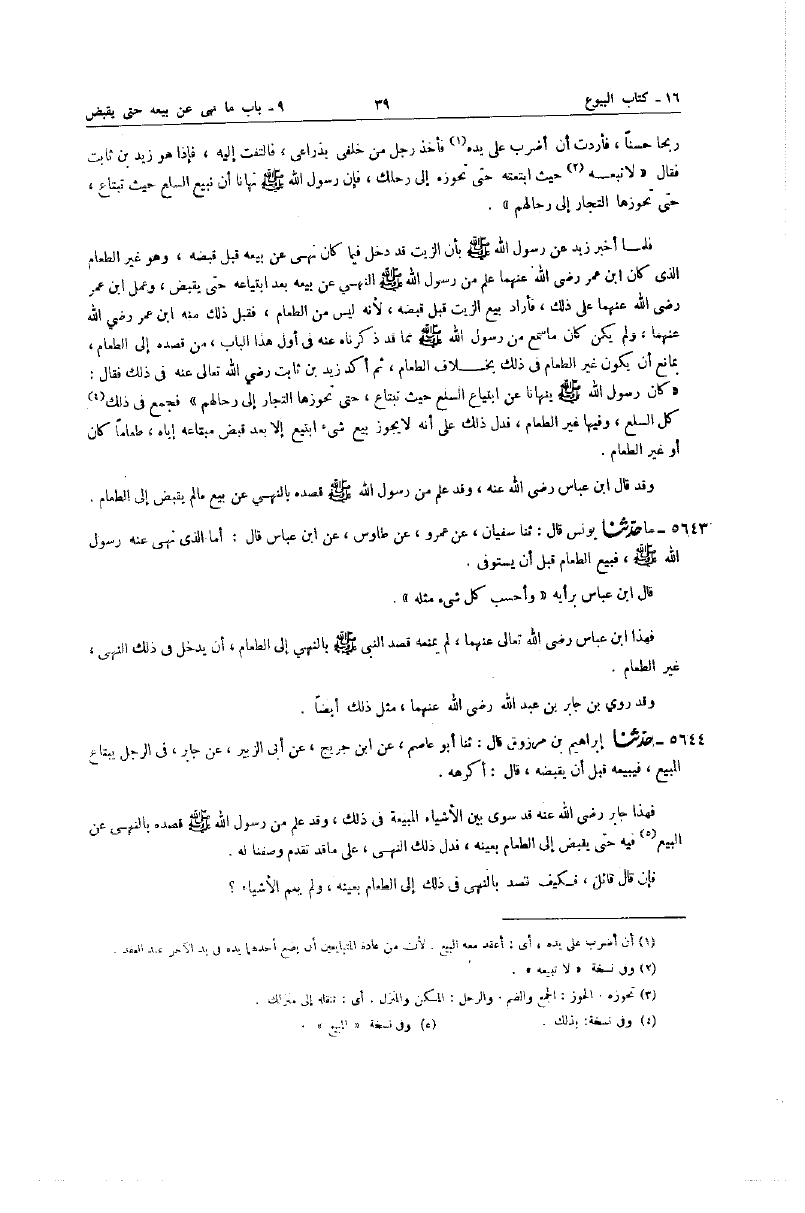 ١٦ - كتاب البيوع ٣٩ ٩ - باب ما نهى عن بيعه حتى يقبض
ربحا حسناً ، فأردت أن أضرب على يده(١) فأخذ رجل من خلفى بذراعى ، فالتفت إليه ، فإذا هو زيد بن ثابت
فقال « لا تبعـه (٢) حيث ابتعته حتى تحوزه إلى رحلك ، فإن رسول الله ﷺ نهانا أن نبيع السلع حيث تبتاع ،
حتى تحوزها التجار إلى رحالهم » .
فلمـا أخبر زيد عن رسول الله ﷺ بأن الزيت قد دخل فيما كان نهـى عن بيعه قبل قبضه ، وهو غير الطعام
الذى كان ابن عمر رضى الله عنهما علم من رسول الله ﷺ النهـي عن بيعه بعد ابتياعه حتى يقبض ، وعمل ابن عمر
رضى الله عنهما على ذلك ، فأراد بيع الزيت قبل قبضه ، لأنه ليس من الطعام ، فقبل ذلك منه ابن عمر رضي الله
عنهما ، ولم يكن كان ماسمع من رسول الله ﷺ مما قد ذكرناه عنه فى أول هذا الباب ، من قصده إلى الطعام ،
بمانع أن يكون غير الطعام فى ذلك بخـلاف الطعام ، ثم أكد زيد بن ثابت رضي الله تعالى عنه فى ذلك فقال :
« كان رسول الله ﷺ ينهانا عن ابتياع السلع حيث تبتاع ، حتى تحوزها التجار إلى رحالهم » فجمع فى ذلك(٤)
كل السلع ، وفيها غير الطعام ، فدل ذلك على أنه لايجوز بيع شىء ابتيع إلا بعد قبض مبتاعه إياه ، طعاماً كان
أو غير الطعام .
وقد قال ابن عباس رضي الله عنه ، وقد علم من رسول الله ﷺ قصده بالنهـي عن بيع مالم يقبض إلى الطعام .
٥٦٤٣ - ما حدثنا يونس قال : ثنا سفيان ، عن عمرو ، عن طاوس ، عن ابن عباس قال : أما الذى نهـى عنه رسول
الله ﷺ ، فبيع الطعام قبل أن يستوفى .
قال ابن عباس برأيه « وأحسب كل شىء مثله » .
فهذا ابن عباس رضي الله تعالى عنهما ، لم يمنعه قصد النبى ﷺ بالنهي إلى الطعام ، أن يدخل فى ذلك النهى ،
غير الطعام .
وقد روي بن جابر بن عبد الله رضي الله عنهما ، مثل ذلك أيضاً .
٥٦٤٤ - حدثنا إبراهيم بن مرزوق قال : ثنا أبو عاصم ، عن ابن جريج ، عن أبى الزبير ، عن جابر ، فى الرجل يبتاع
المبيع ، فيبيعه قبل أن يقبضه ، قال : أكرهه .
فهذا جابر رضي الله عنه قد سوى بين الأشياء المبيعة فى ذلك ، وقد علم من رسول الله ﷺ قصده بالنهـى عن
البيع(٥) فيه حتى يقبض إلى الطعام بعينه ، فدل ذلك النهـى ، على ماقد تقدم وصفنا له .
فإن قال قائل ، فـكيف قصد بالنهى فى ذلك إلى الطعام بعينه ، ولم يعم الأشياء ؟
(١) أن أضرب على يده ، أى : أعقد معه البيع . لأن من عادة المتبايعين أن يضع أحدهما يده فى يد الآخر عند العقد .
(٢) وفى نسخة « لا تبيعه » .
(٣) تحوزه . الحوز : الجمع والضم . والرحل : المسكن والمنزل . أى : تنقله إلى منزلك .
(٤) وفى نسخة : بذلك . (٥) وفى نسخة « المبيع » .